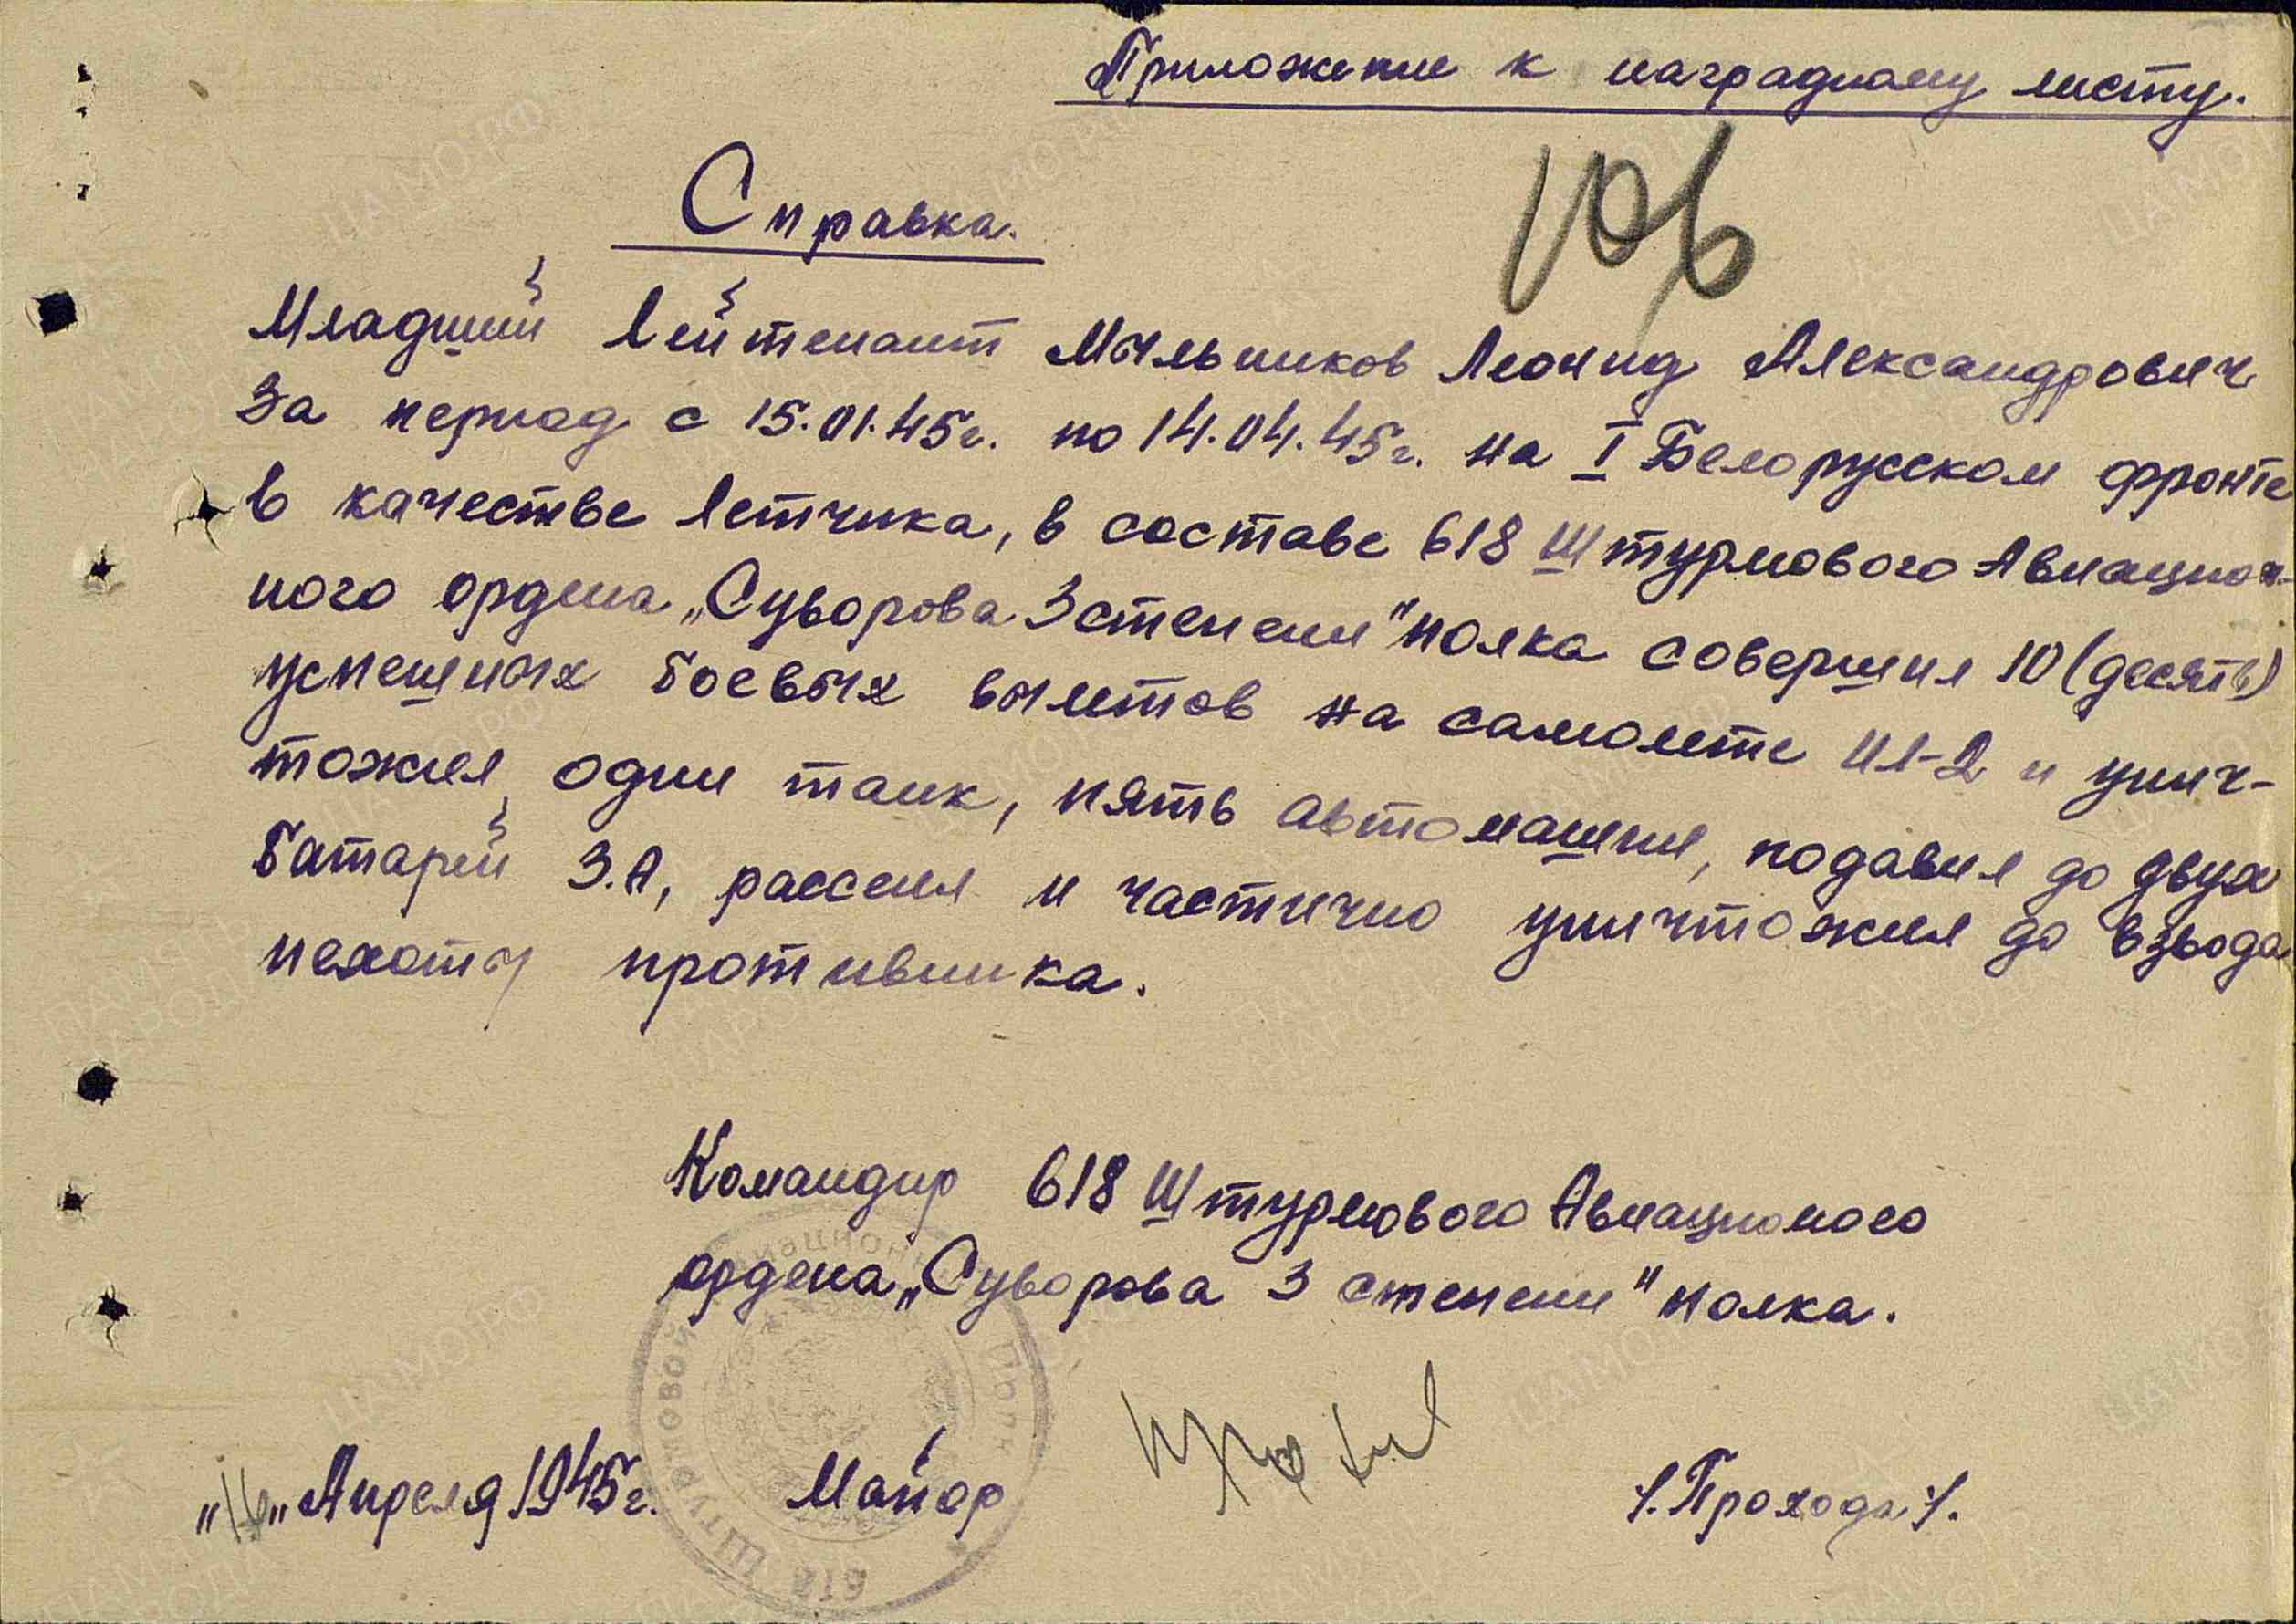 Приложение к наградному листу.
106
Справка.
Младший Лейтенант Мыльников Леонид Александрович
За период с 15.01.45г. по 14.04.45г. на I Белорусском фронте
в качестве Летчика, в составе 618 Штурмового Авиацион-
ного ордена „Суворова 3 степени" полка совершил 10 (десять)
успешных боевых вылетов на самолете Ил-2 и унич-
тожил один танк, пять автомашин, подавил до двух
батарей З.А, рассеял и частично уничтожил до взвода
пехоты противника.
Командир 618 Штурмового Авиационого
ордена „Суворова 3 степени" полка.
„16„ Апреля 1945г. Майор /.Прохода./.
618 Штурмовой Авиационный Полк